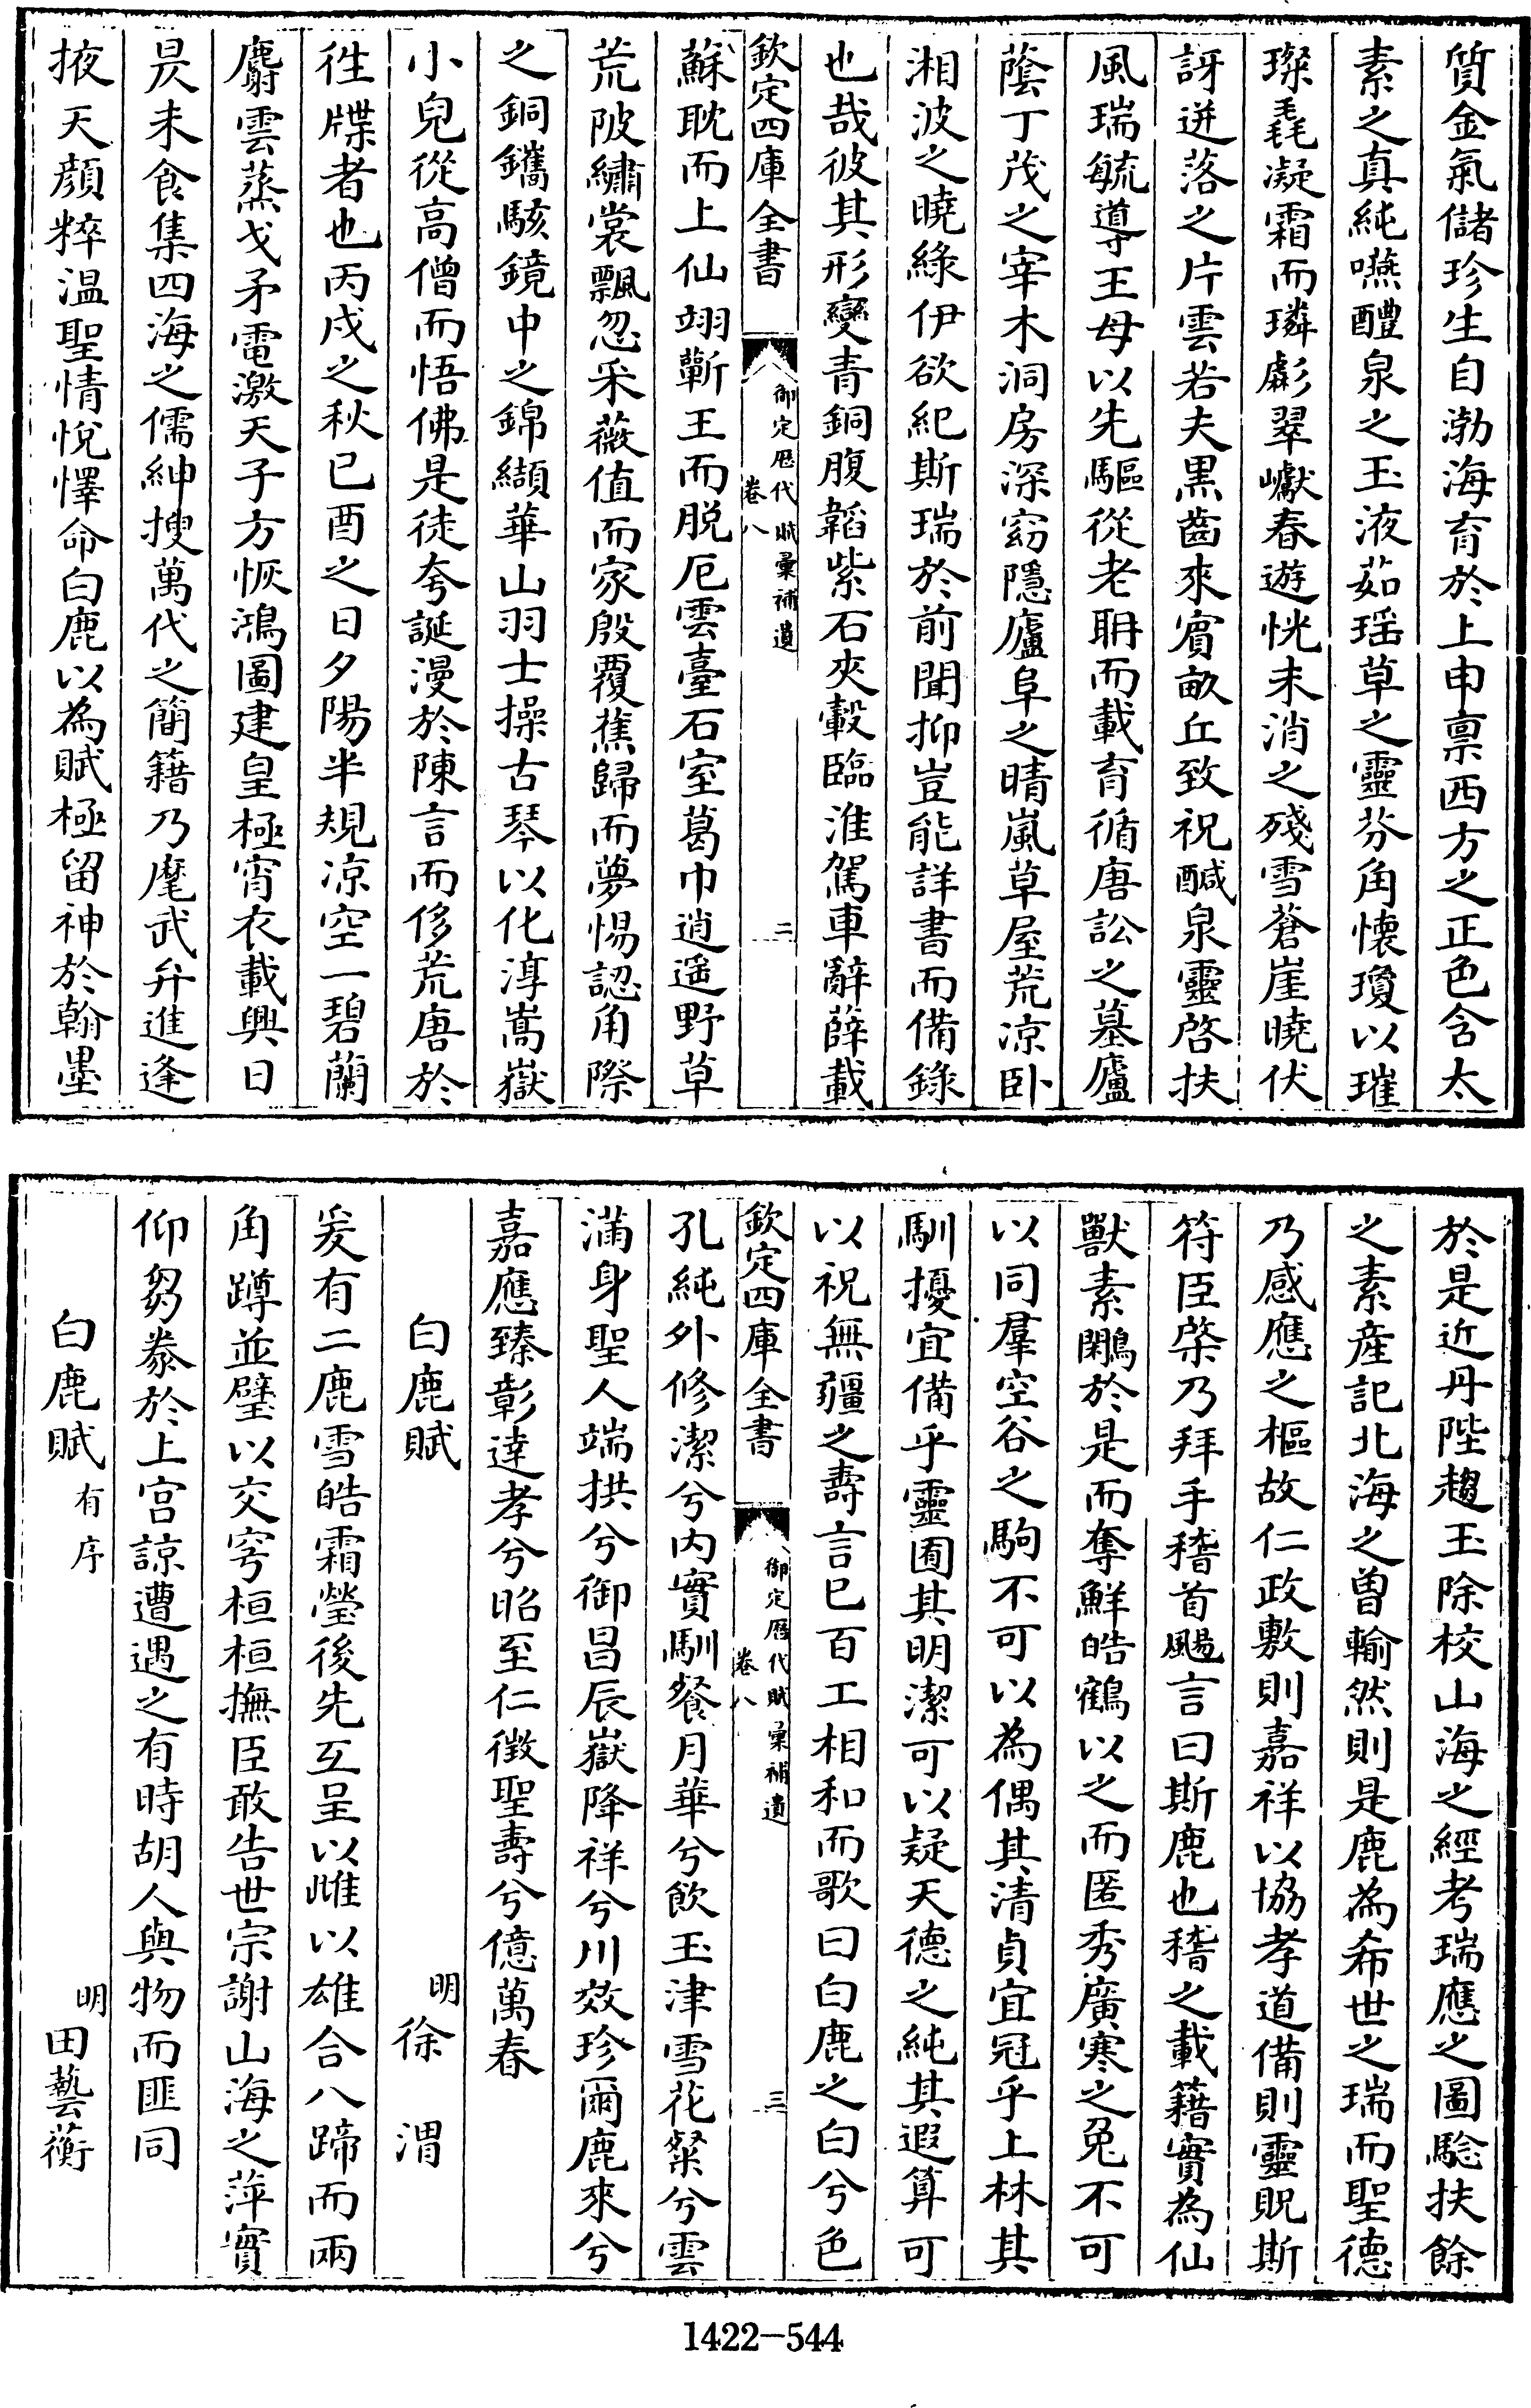 質金氣儲珍生自渤海育於上申禀西方之正色含太
素之真純嚥醴泉之玉液茹瑶草之靈芬角懷瓊以璀
璨毳凝霜而璘彪翠巘春遊恍未消之殘雪蒼崖曉伏
訝迸落之片雲若夫黒齒來賓畝丘致祝醎泉靈啓扶
風瑞毓導王母以先驅從老耼而載育循唐訟之墓廬
蔭丁茂之宰木洞房深窈隱廬阜之晴嵐草屋荒凉卧
湘波之曉綠伊欲紀斯瑞於前聞抑豈能詳書而備錄
也哉彼其形變青銅腹韜紫石夾轂臨淮駕車辭薛載
欽定四庫全書
御定歴代賦彙補遺
卷八
二
蘇耽而上仙翊蘄王而脱厄雲臺石室葛巾逍遥野草
荒陂繡裳飄忽采薇值而家殷覆蕉歸而夢惕認角際
之銅鑴駭鏡中之錦纈華山羽士操古琴以化淳嵩嶽
小兒從高僧而悟佛是徒夸誕漫於陳言而侈荒唐於
徃牒者也丙戍之秋已酉之日夕陽半規凉空一碧蘭
麝雲蒸戈矛電激天子方恢鴻圖建皇極宵衣載興日
昃未食集四海之儒紳搜萬代之簡籍乃麾武弁進逢
掖天顔粹温聖情悅懌命白鹿以為賦極留神於翰墨
於是近丹陛趨玉除校山海之經考瑞應之圖騐扶餘
之素産記北海之曽輸然則是鹿為希世之瑞而聖德
乃感應之樞故仁政敷則嘉祥以協孝道備則靈貺斯
符臣棨乃拜手稽首颺言曰斯鹿也稽之載籍實為仙
獸素鷴於是而奪鮮皓鶴以之而匿秀廣寒之兔不可
以同羣空谷之駒不可以為偶其清貞宜冠乎上林其
馴擾宜備乎靈囿其明潔可以疑天德之純其遐算可
以祝無疆之壽言已百工相和而歌曰白鹿之白兮色
欽定四庫全書
御定歴代賦彙補遺
卷八
三
孔純外修潔兮内實馴餐月華兮飲玉津雪花粲兮雲
滿身聖人端拱兮御昌辰嶽降祥兮川效珍爾鹿來兮
嘉應臻彰達孝兮昭至仁徴聖壽兮億萬春
白鹿賦 明 徐渭
爰有二鹿雪皓霜瑩後先互呈以雌以雄合八蹄而兩
角蹲並璧以交穹桓桓撫臣敢告世宗謝山海之萍實
仰芻豢於上宫諒遭遇之有時胡人與物而匪同
白鹿賦 有序 明 田藝蘅
1422—544